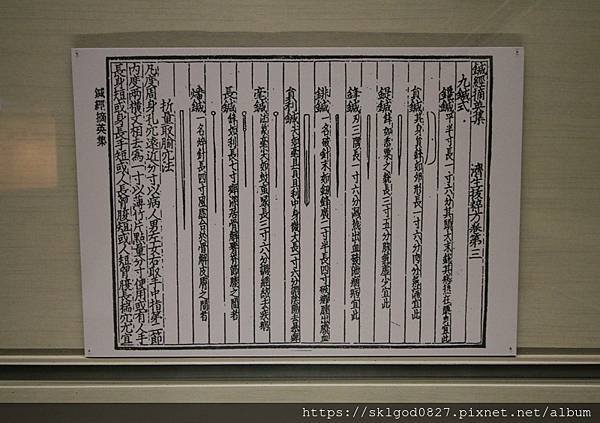 鍼經摘英集 濟生拔粹方卷第三
九鍼式
鑱鍼 平半寸長一寸六分其頭大末銳其病熱在頭身宜此
員鍼 其身員鋒如卵形長一寸六分肉分氣滿宜此
鍉鍼 鋒如黍粟之銳長三寸五分脉氣虛少宜此
鋒鍼 刃三隅長一寸六分瀉熱出血發泄痼病宜此
鈹鍼 一名破針末如劔鋒廣二寸半長四寸破癰腫出膿血
員利鍼 尖如氂且員且利中身微大長一寸六分調陰陽去暴痹
毫鍼 法象毫尖如蚊虻喙長三寸六分調經絡去疾病
長鍼 鋒如利長七寸痹深居骨解腰脊節腠之間者
燔鍼 一名焠針長四寸風虛合於骨解皮膚之間者
折量取腧穴法
凡度周身孔穴遠近分寸以病人男左女右取手中指第二節
內度兩横文相去為一寸以薄竹片點量分寸使用或有人手
長身短或身長手短或人長胷腹短或人短胷腹長揣穴尤宜
鍼經摘英集
https://sklgod0827.pixnet.net/album